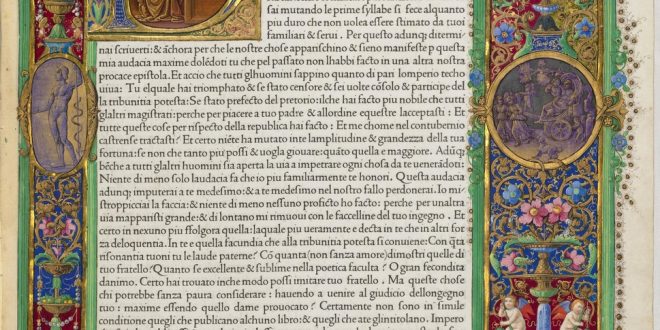 sai mutando le prime syllabe si fece alquanto
piu duro che non uolea essere stimato da tuoi
familiari & serui. Per questo adunq; ditermi
nai scriuerti: & anchora per che le nostre chose apparischino & sieno manifeste p questa
mia audacia maxime dolédoti tu che pel passato non lhabbi facto in una altra nostra
procace epistola. Et accio che tutti glhuomini sappino quanto di pari lomperio techo
uiua: Tu elquale hai triomphato & se stato censore & sei uolte cósolo & participe del
la tribunitia potesta: Se stato prefecto del pretorio: ilche hai facto piu nobile che tutti
glaltri magistrati: perche per piacere a tuo padre & allordine equestre lacceptasti: Et
tutte queste cose per rispecto della republica hai facto: Et me chome nel contubernio
castrense tractasti? Et certo niéte ha mutato inte lamplitudine & grandezza della tua
fortuna: se non che tanto piu possi & uogla giouare: quáto quella e maggiore. Adúq;
béche a tutti glaltri huomini sia aperta la uia a impetrare ogni chosa da te uenerádoti:
Niente di meno solo laudacia fa che io piu familiarmente te honori. Questa audacia
adunq; imputerai a te medesimo: & a te medesimo nel nostro fallo perdonerai. Io mi
stropicciai la faccia: & niente di meno nessuno proficto ho facto: perche per unaltra
uia mapparisti grande: & di lontano mi rimuoui con le faccelline del tuo ingegno. Et
certo in nexuno piu ffolgora quella: laquale piu ueramente e decta in te che in altri forza
deloquentia. In te e quella facundia che alla tribunitia potesta si conuiene: Con q̃ta
risonantia tuoni tu le laude paterne? Có quanta (non sanza amore) dimostri quelle di
tuo fratello? Quanto se excellente & sublime nella poetica faculta? O gran fecondita
danimo. Certo hai trouato inche modo possi imitare tuo fratello. Ma queste chose
chi potrebbe sanza paura considerare: hauendo a uenire al giudicio dellongegno
tuo: maxime essendo quello dame prouocato? Certamente non sono in simile
conditione quegli che publicano alchuno libro: & quegli che atglintitolano. Impero